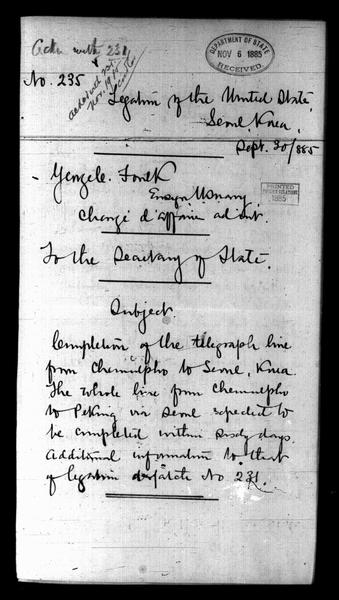 Ackn with 231
DEPARTMENT OF STATE
NOV 6 1885
RECEIVED
No. 235
Nov. 19
Legation of the United States,
Seoul, Korea,
Sept. 30/885
George C. Foulk
Ensign U.S. Navy,
Chargé d'affaires ad int.
PRINTED
FOREIGN RELATIONS
1885
To the Secretary of State.
Subject.
Completion of the telegraph line
from Chemulpho to Seoul, Korea.
The whole line from Chemulpho
to Peking via Seoul expected to
be completed within sixty days.
Additional information to that
of legation dispatch No 231.